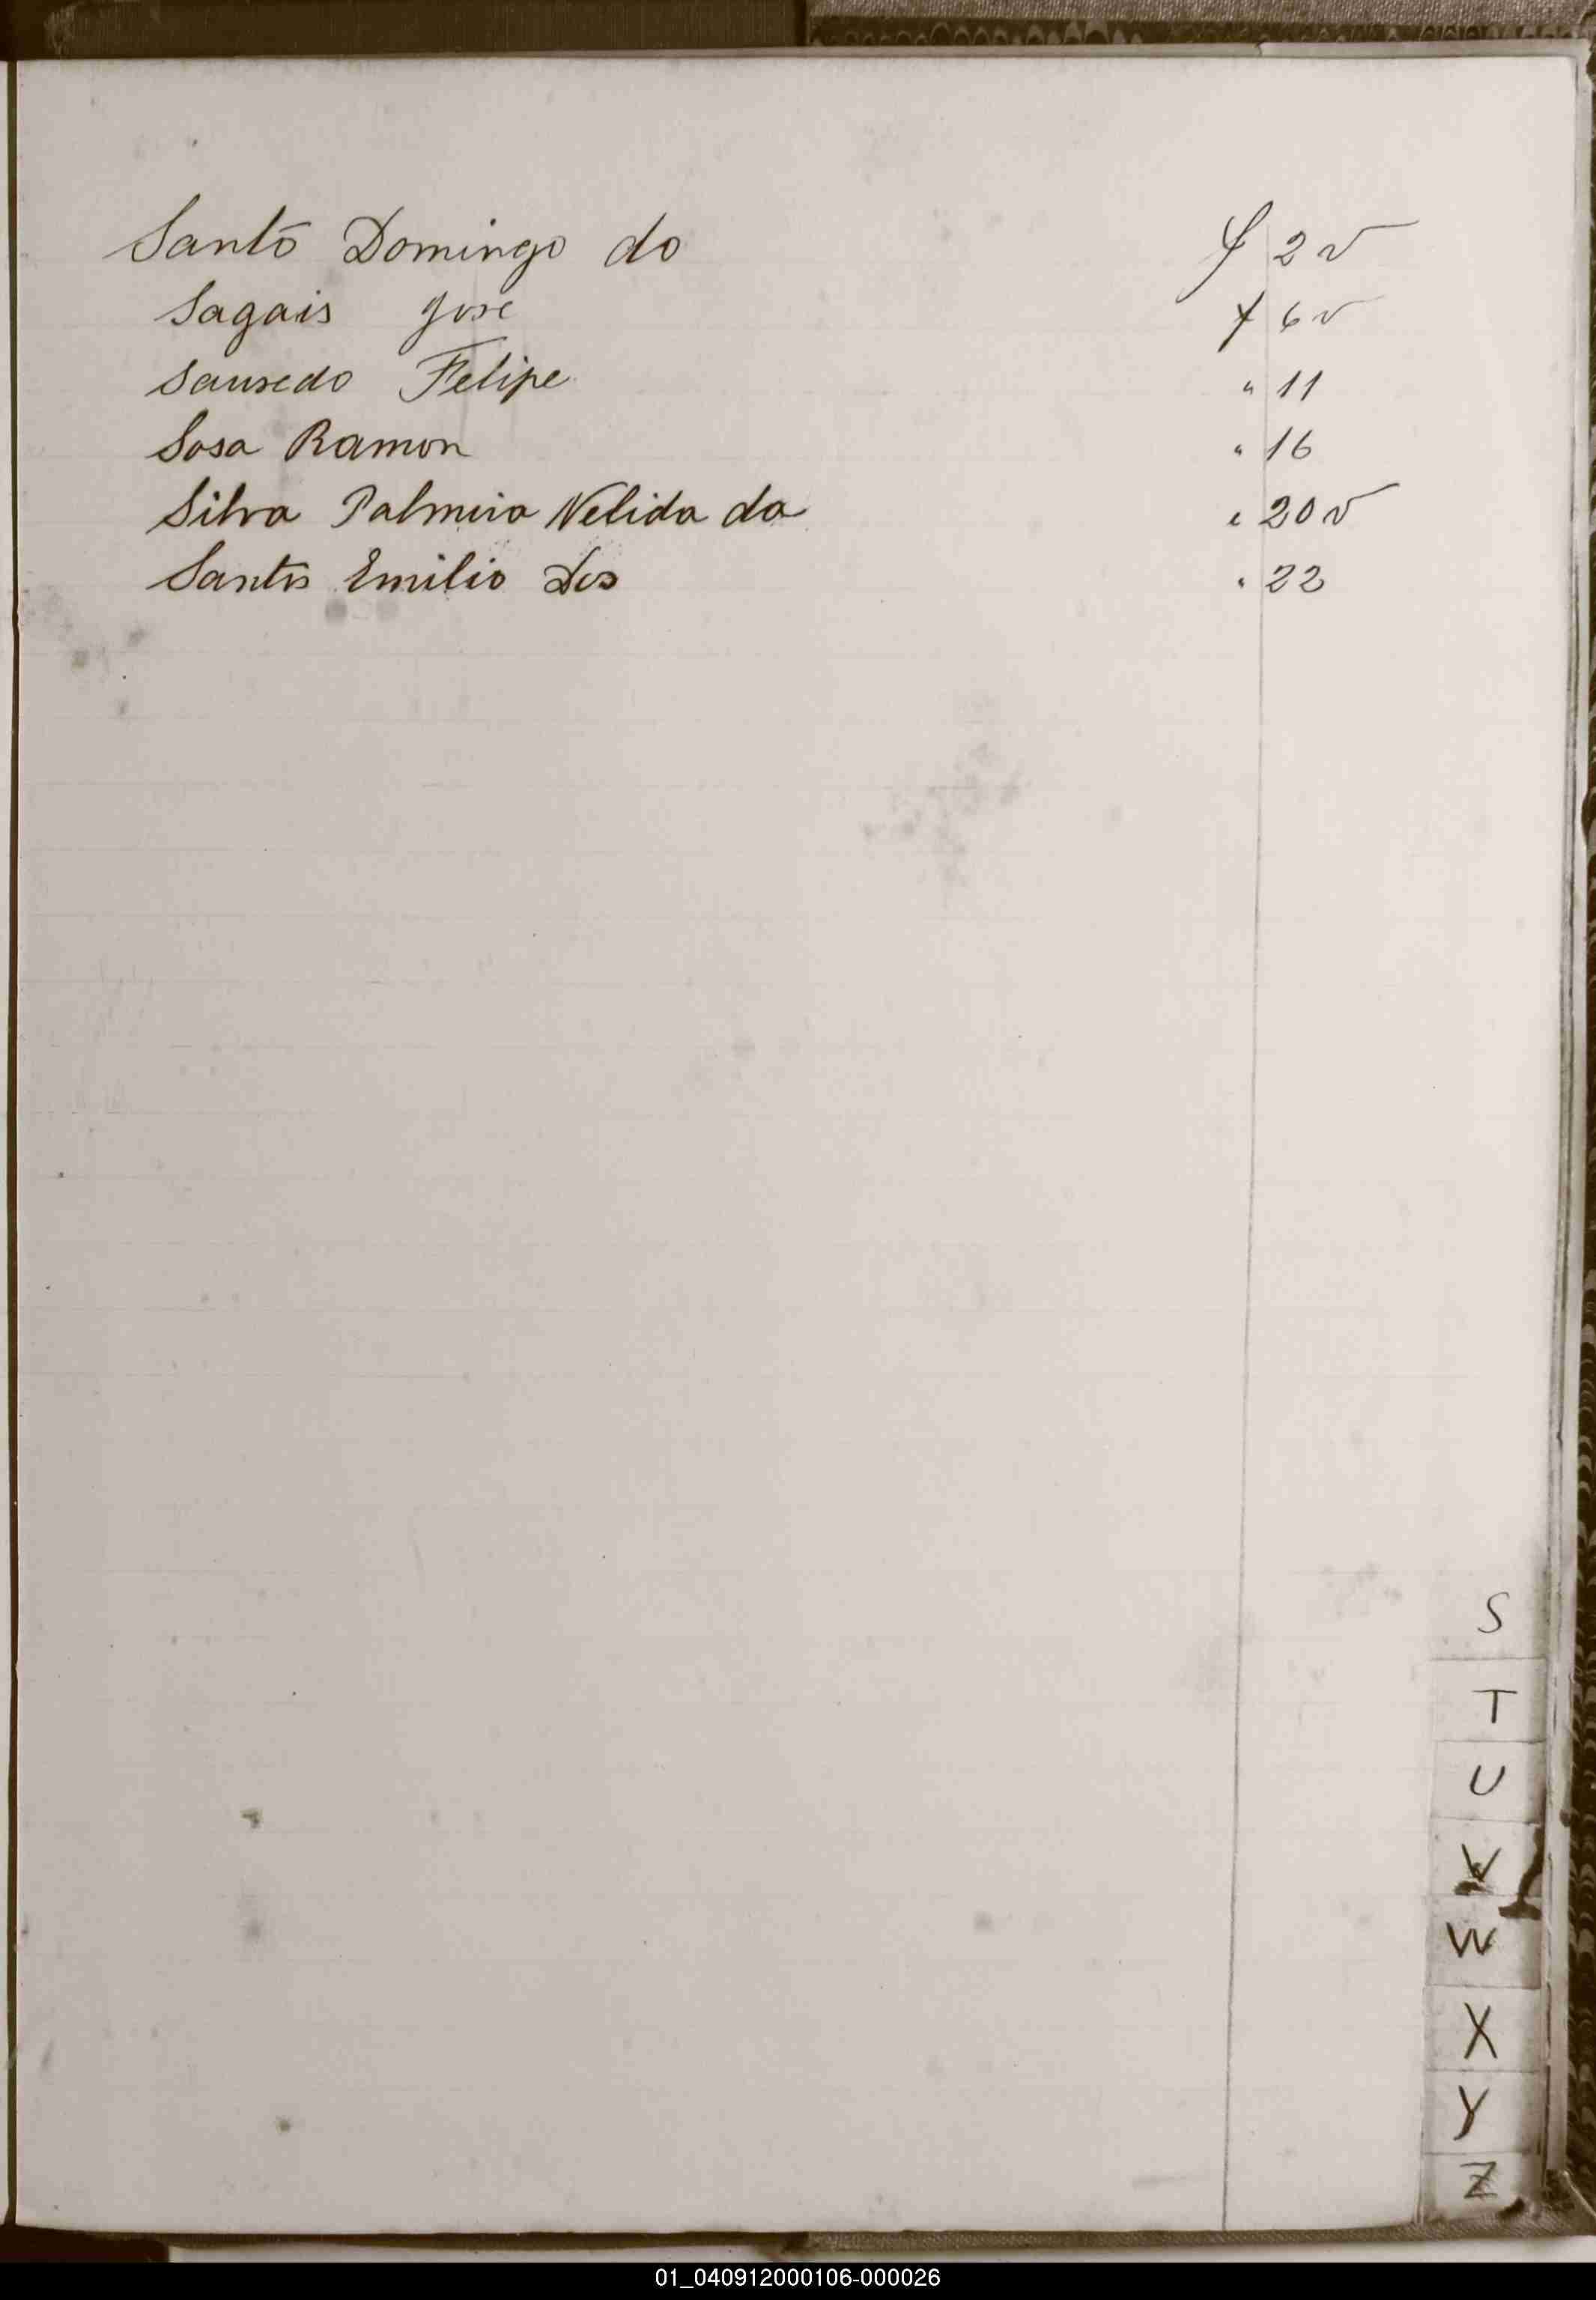 Santo Domingo do f 2 v
Sagais Jose f 6 v
Sausedo Felipe " 11
Sosa Ramon " 16
Silva Palmira Nelida da " 20 v
Santos Emilio Dos " 22
S
T
U
V
W
X
Y
Z
01_040912000106-000026